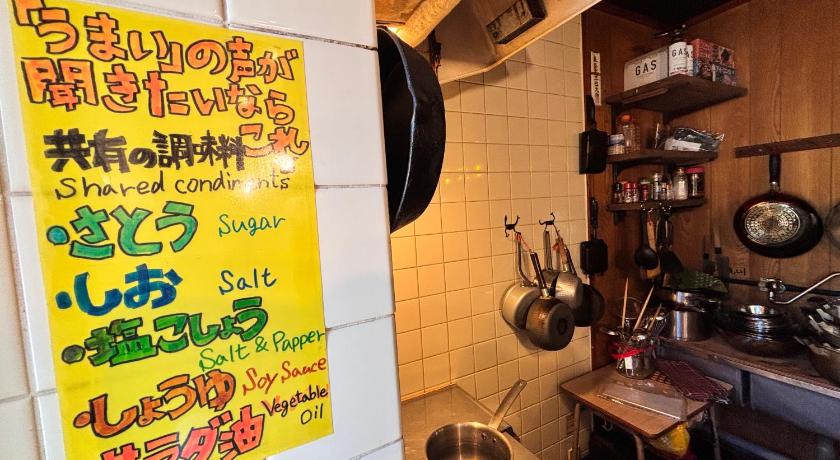 「うまい」の声が
聞きたいなら
これ
共有の調味料
Shared condiments
・さとう Sugar
・しお Salt
・塩こしょう
Salt & Papper
・しょうゆ Soy Sauce
サラダ油 Vegetable
Oil
GAS
GAS